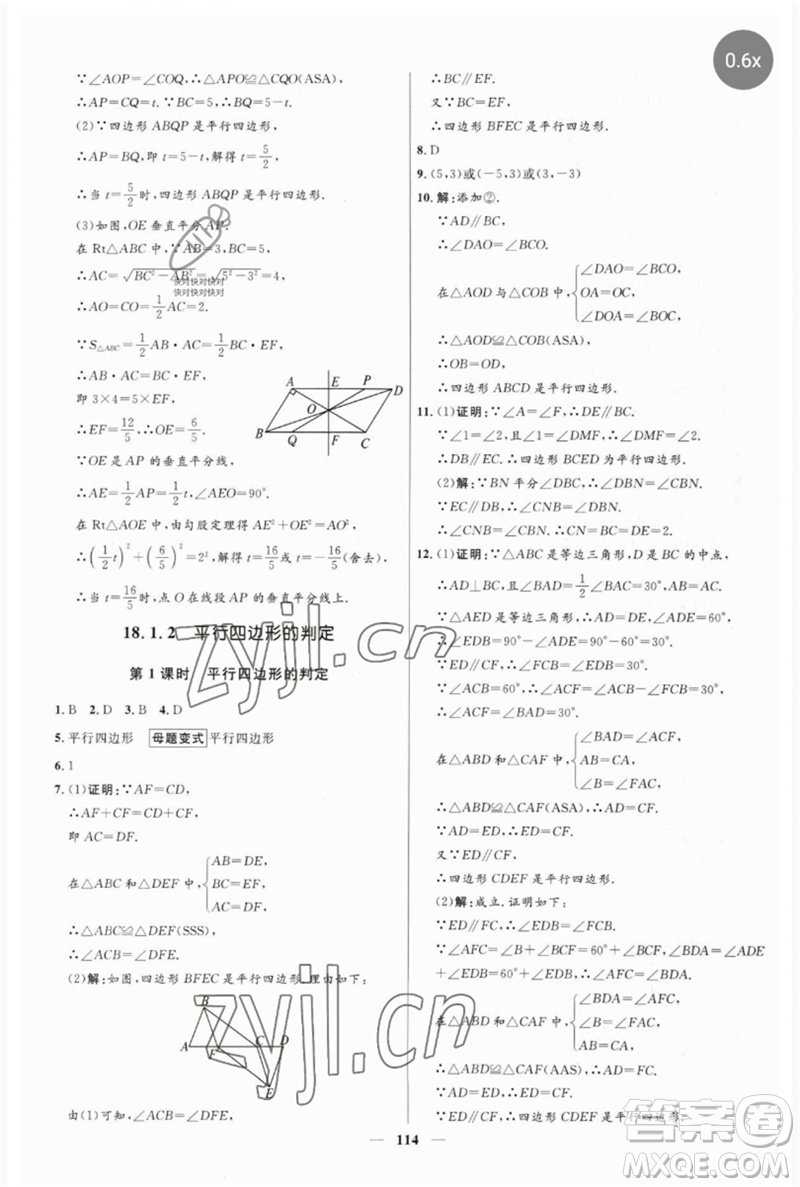 0.6x
∵∠AOP=∠COQ,∴△APO≌△CQO(ASA),
∴AP=CQ=t. ∵BC=5,∴BQ=5-t.
(2)∵四边形ABQP是平行四边形,
∴AP=BQ,即t=5-t,解得t=5/2,
∴当t=5/2时,四边形ABQP是平行四边形.
(3)如图,OE垂直平分AP.
在Rt△ABC中,∵AB=3,BC=5,
∴AC=√(BC²-AB²)=√(5²-3²)=4,
快对快对快对
快对快对快对
∴AO=CO=1/2AC=2.
∵S△ABC=1/2AB·AC=1/2BC·EF,
∴AB·AC=BC·EF,
即3×4=5×EF,
∴EF=12/5,∴OE=6/5.
A E P D
O
B Q F C
∵OE是AP的垂直平分线,
∴AE=1/2AP=1/2t,∠AEO=90°.
在Rt△AOE中,由勾股定理得AE²+OE²=AO²,
∴(1/2t)²+(6/5)²=2²,解得t=16/5或t=-16/5(舍去),
∴当t=16/5时,点O在线段AP的垂直平分线上.
18.1.2 平行四边形的判定
第1课时 平行四边形的判定
1.B 2.D 3.B 4.D
5.平行四边形 母题变式 平行四边形
6.1
7.(1)证明:∵AF=CD,
∴AF+CF=CD+CF,
即AC=DF.
在△ABC和△DEF中,{AB=DE,
BC=EF,
AC=DF,
∴△ABC≌△DEF(SSS),
∴∠ACB=∠DFE.
(2)解:如图,四边形BFEC是平行四边形.理由如下:
B
A F C D
E
由(1)可知,∠ACB=∠DFE,
∴BC∥EF.
又∵BC=EF,
∴四边形BFEC是平行四边形.
8.D
9.(5,3)或(-5,3)或(3,-3)
10.解:添加②.
∵AD∥BC,
∴∠DAO=∠BCO.
在△AOD与△COB中,{∠DAO=∠BCO,
OA=OC,
∠DOA=∠BOC,
∴△AOD≌△COB(ASA),
∴OB=OD,
∴四边形ABCD是平行四边形.
11.(1)证明:∵∠A=∠F,∴DE∥BC.
∵∠1=∠2,且∠1=∠DMF,∴∠DMF=∠2,
∴DB∥EC.∴四边形BCED为平行四边形.
(2)解:∵BN平分∠DBC,∴∠DBN=∠CBN.
∵EC∥DB,∴∠CNB=∠DBN,
∴∠CNB=∠CBN,∴CN=BC=DE=2.
12.(1)证明:∵△ABC是等边三角形,D是BC的中点,
∴AD⊥BC,且∠BAD=1/2∠BAC=30°.
∵△AED是等边三角形,
∴AD=AE=ED,∠ADE=60°,
∴∠EDB=90°-∠ADE=90°-60°=30°.
∵ED∥CF,∴∠FCB=∠EDB=30°.
∵∠ACB=60°,∴∠ACF=∠ACB-∠FCB=30°,
∴∠ACF=∠BAD=30°.
在△ABD和△CAF中,{∠BAD=∠ACF,
AB=CA,
∠B=∠FAC,
∴△ABD≌△CAF(ASA),∴AD=CF.
∵AD=ED,∴ED=CF.
又∵ED∥CF,
∴四边形CDEF是平行四边形.
(2)解:成立.证明如下:
∵ED∥FC,∴∠EDB=∠FCB.
∵∠AFC=∠BCF+∠B=60°+∠BCF,∠BDA=∠ADE
+∠EDB=60°+∠EDB,∴∠AFC=∠BDA.
在△ABD和△CAF中,{∠BDA=∠AFC,
∠B=∠FAC,
AB=CA,
∴△ABD≌△CAF(AAS),∴AD=FC.
∵AD=ED,∴ED=CF.
又∵ED∥CF,∴四边形CDEF是平行四边形.
114
zyjl.cn
zyjl.cn
答案卷
MXQE.COM